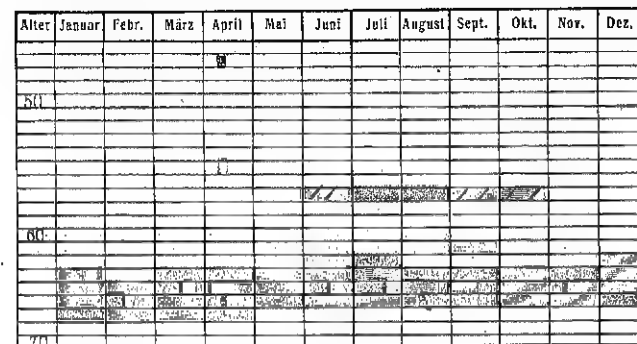 Alter Januar Febr. März April Mai Juni Juli August Sept. Okt. Nov. Dez.
50
60
70